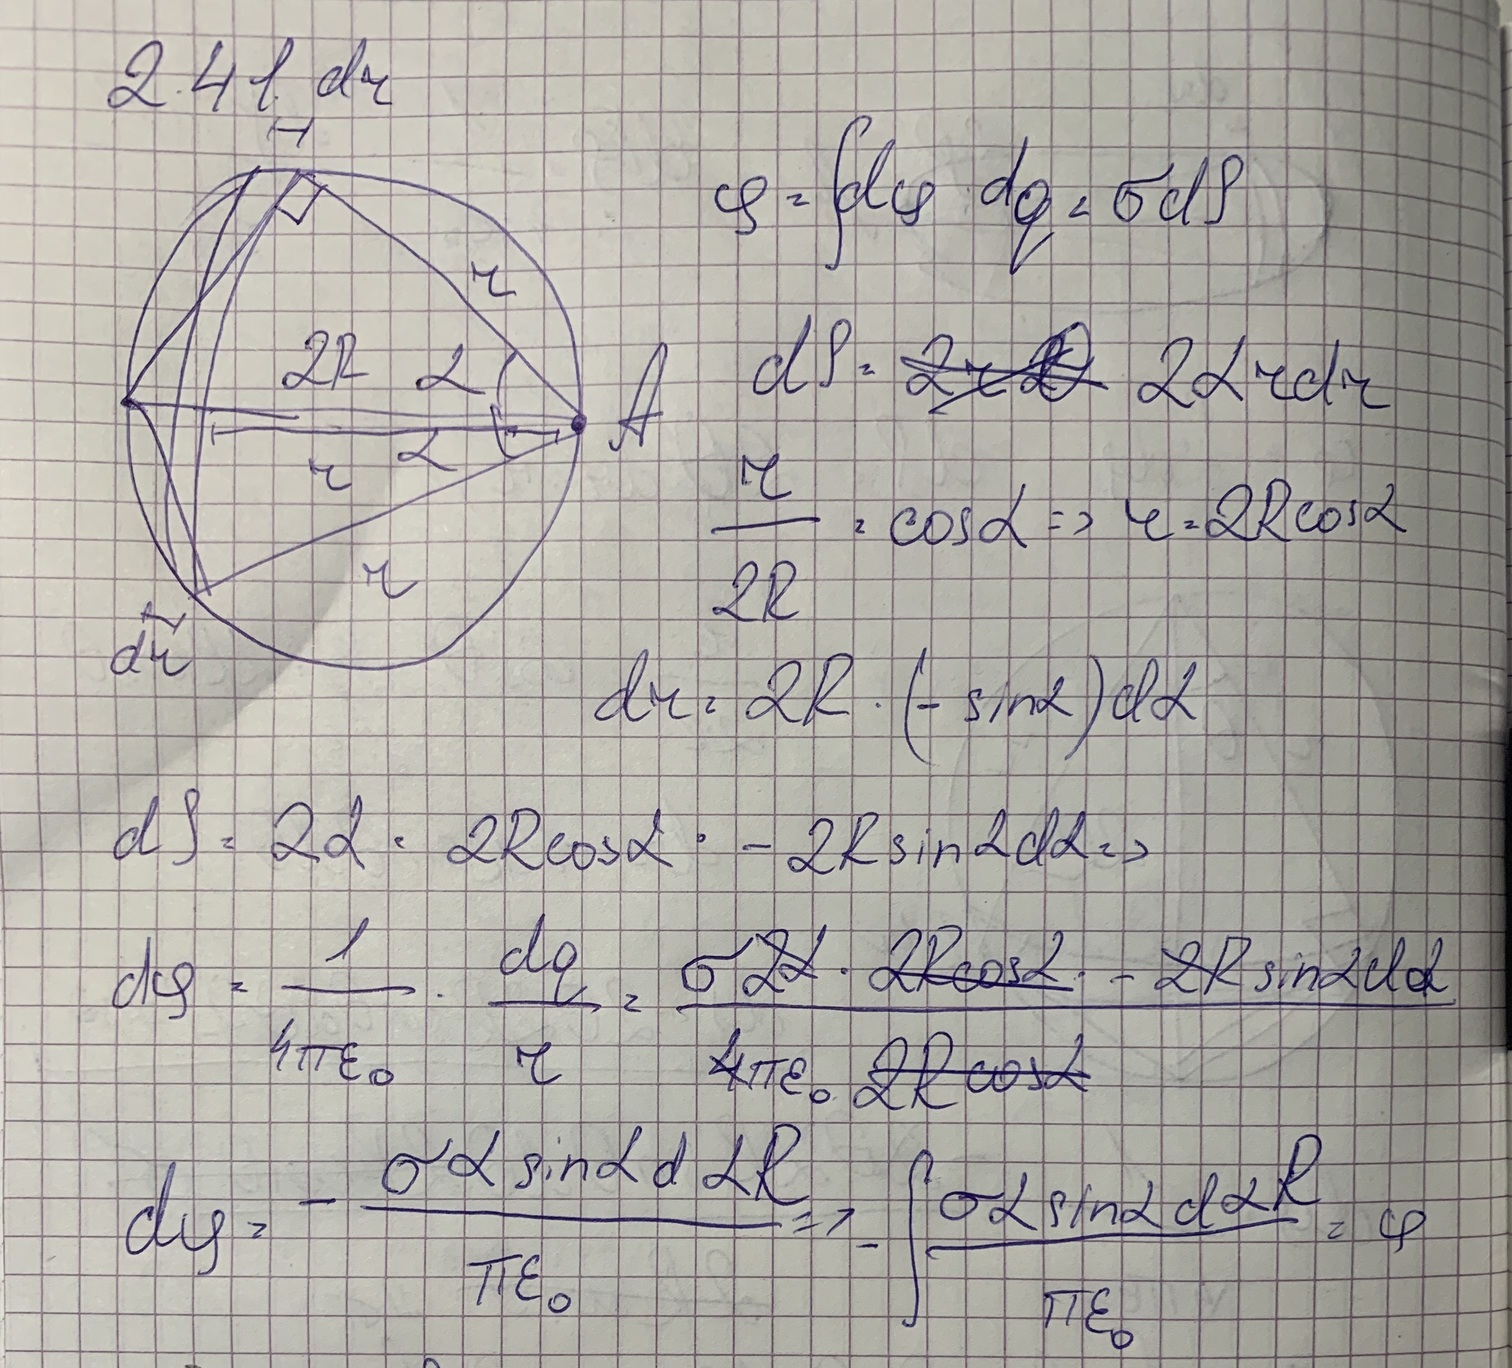 2.41. dr
φ = ∫dφ dq = σdS
r
2R α
A
dS = 2αrdr
α
r
r/2R = cosα => r = 2Rcosα
r
dr
dr = 2R · (- sinα)dα
dS = 2α · 2Rcosα · - 2Rsinαdα =>
dφ = 1/4πε₀ · dq/r = σ2α · 2Rcosα · - 2Rsinαdα/4πε₀ 2Rcosα
dφ = - σαsinαdαR/πε₀ => - ∫σαsinαdαR/πε₀ = φ